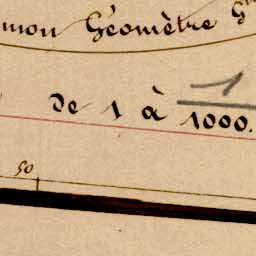 mon Géomètre
de 1 à 1/1000.
50